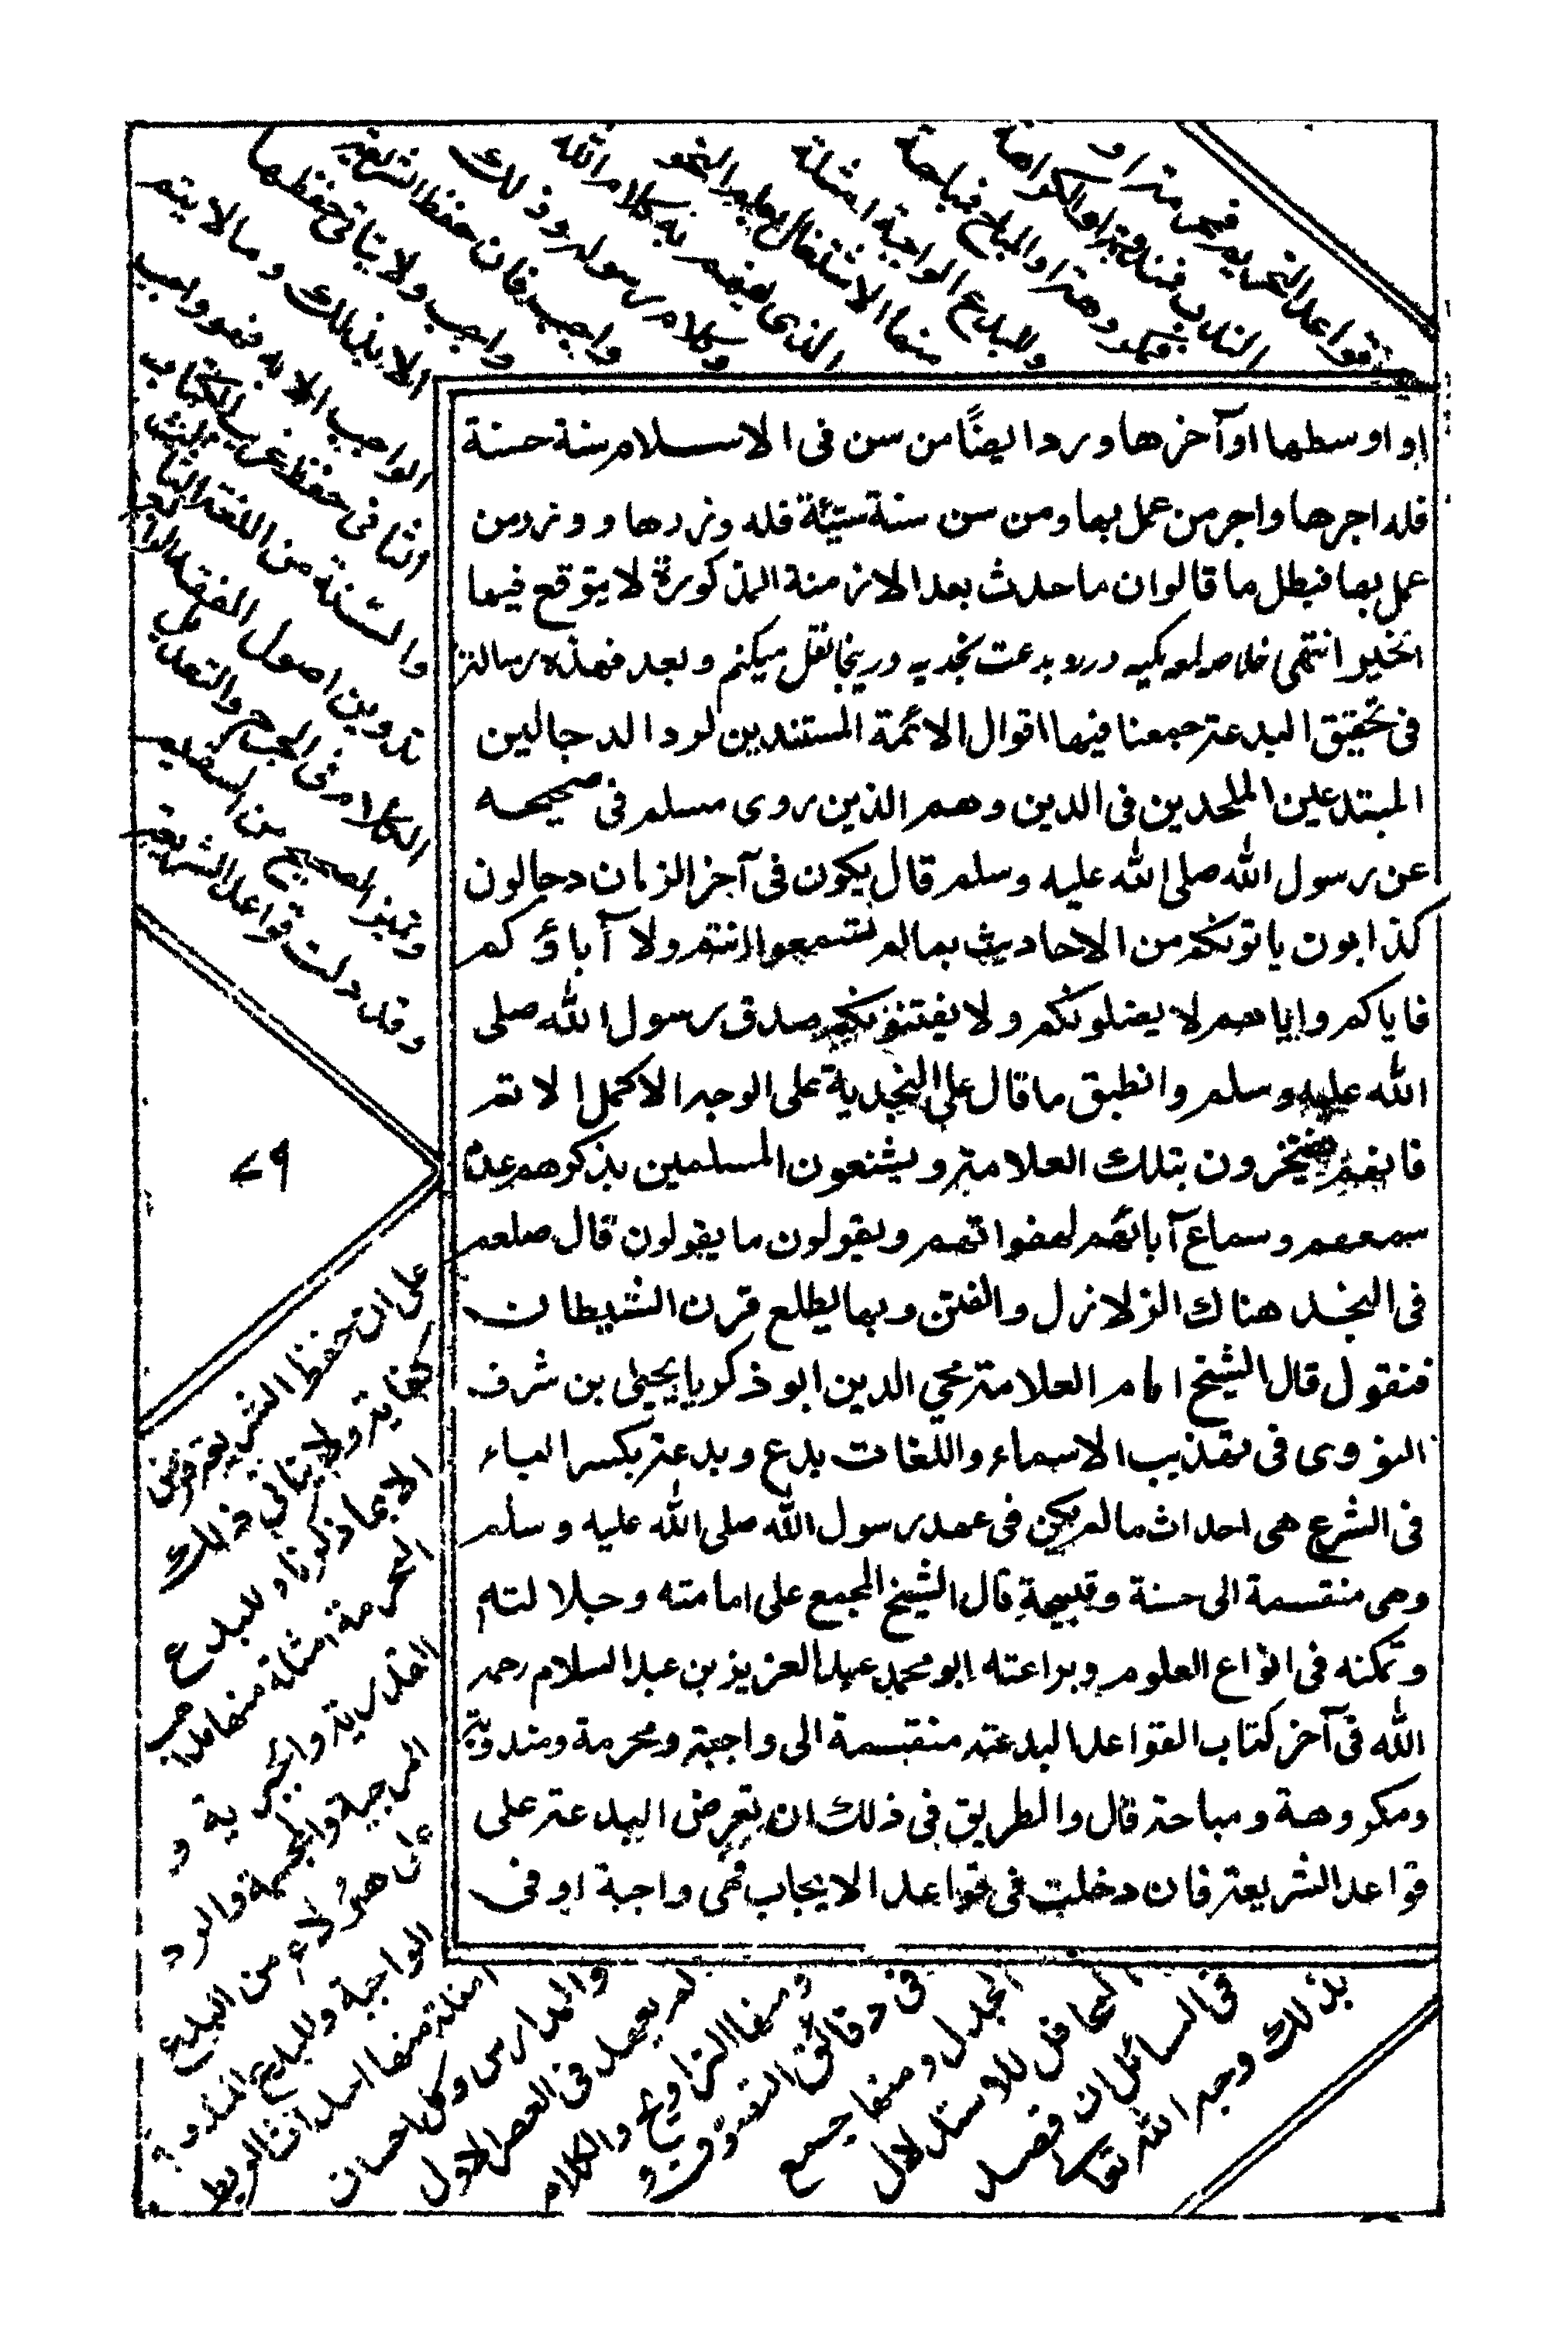 او اوسطها او آخرها ورد ايضًا من سن فى الاسلام سنة حسنة
فله اجرها واجر من عمل بها ومن سن سنة سيّئة فله وزرها ووزر من
عمل بها فبطل ما قالوا ان ما حدث بعد الازمنة المذكورة لا يتوقع فيها
الخير انتهى خلاصه رساله مكيه در رد بدعت نجديه درينجا نقل ميكنم وبعد فهذه رسالتر
فى تحقيق البدعتر جمعنا فيها اقوال الائمة المستندين لرد الدجالين
المبتدعين الملحدين فى الدين وهم الذين روى مسلم فى صحيحه
عن رسول الله صلى الله عليه وسلم قال يكون فى آخر الزمان دجالون
كذابون ياتونكم من الاحاديث بما لم تسمعوا انتم ولا آباؤكم
فاياكم واياهم لا يضلونكم ولا يفتنونكم صدق رسول الله صلى
الله عليه وسلم وانطبق ما قال على النجدية على الوجه الاكمل الاتم
فانهم يفتخرون بتلك العلامتر ويشنعون المسلمين بذكرهم عدم
سمعهم وسماع آبائهم لهفواتهم ويقولون ما يقولون قال صلعم
فى النجد هناك الزلازل والفتن وبها يطلع قرن الشيطان
فنقول قال الشيخ امام العلامتر محي الدين ابو ذكريا يحيٰى بن شرف
النووى فى تهذيب الاسماء واللغات بدع وبدعتر بكسر الباء
فى الشرع هى احداث ما لم يكن فى عهد رسول الله صلى الله عليه وسلم
وهى منقسمة الى حسنة وقبيحة قال الشيخ المجمع على امامته وجلالته
وتمكنه فى انواع العلوم وبراعته ابو محمد عبد العزيز بن عبد السلام رحمه
الله فى آخر كتاب القواعد البدعته منقسمة الى واجبة ومحرمة ومندوبة
ومكروهة ومباحة قال والطريق فى ذلك ان يعرض البدعتر على
قواعد الشريعتر فان دخلت فى قواعد الايجاب فهى واجبة او فى
قواعد التحريم فمحرمتر او
الندب فمندوبتر او الكراهة
فمكروهتر او المباح فمباحة
وللبدع الواجبة امثلة
منها الاشتغال بعلم النحو
الذى يفهم به كلام الله
وكلام رسوله وذلك
واجب فان حفظ الشريعتر
واجب ولا يتاتى حفظها
الا بذلك وما لا يتم
الواجب الا به فهو واجب
وثانى حفظ غريب الكتاب
والسنة من اللغة الثالث
تدوين اصول الفقه الرابع
الكلام فى الجرح والتعديل
وتميز الصحيح من السقيم
وقد دلت قواعد الشريعتر
٧٩
على ان حفظ الشريعتر فرض
كفايتر ولا يتاتى ذلك
الا بما ذكرناه وللبدع
المحرمة امثلة منها مذاهب
القدرية والجبرية و
المرجية والمجسمة والرد
على هؤلاء من البدع
الواجبة وللبدع المندوبة
امثلة منها احداث الربط
والمدارس وكل احسان
لم يعهد فى العصر الاول
ومنها التراويح والكلام
فى دقائق التصوف و
الجدل ومنها جمع
المحافل للاستدلال
فى المسائل ان قصد
بذلك وجه الله تعالى